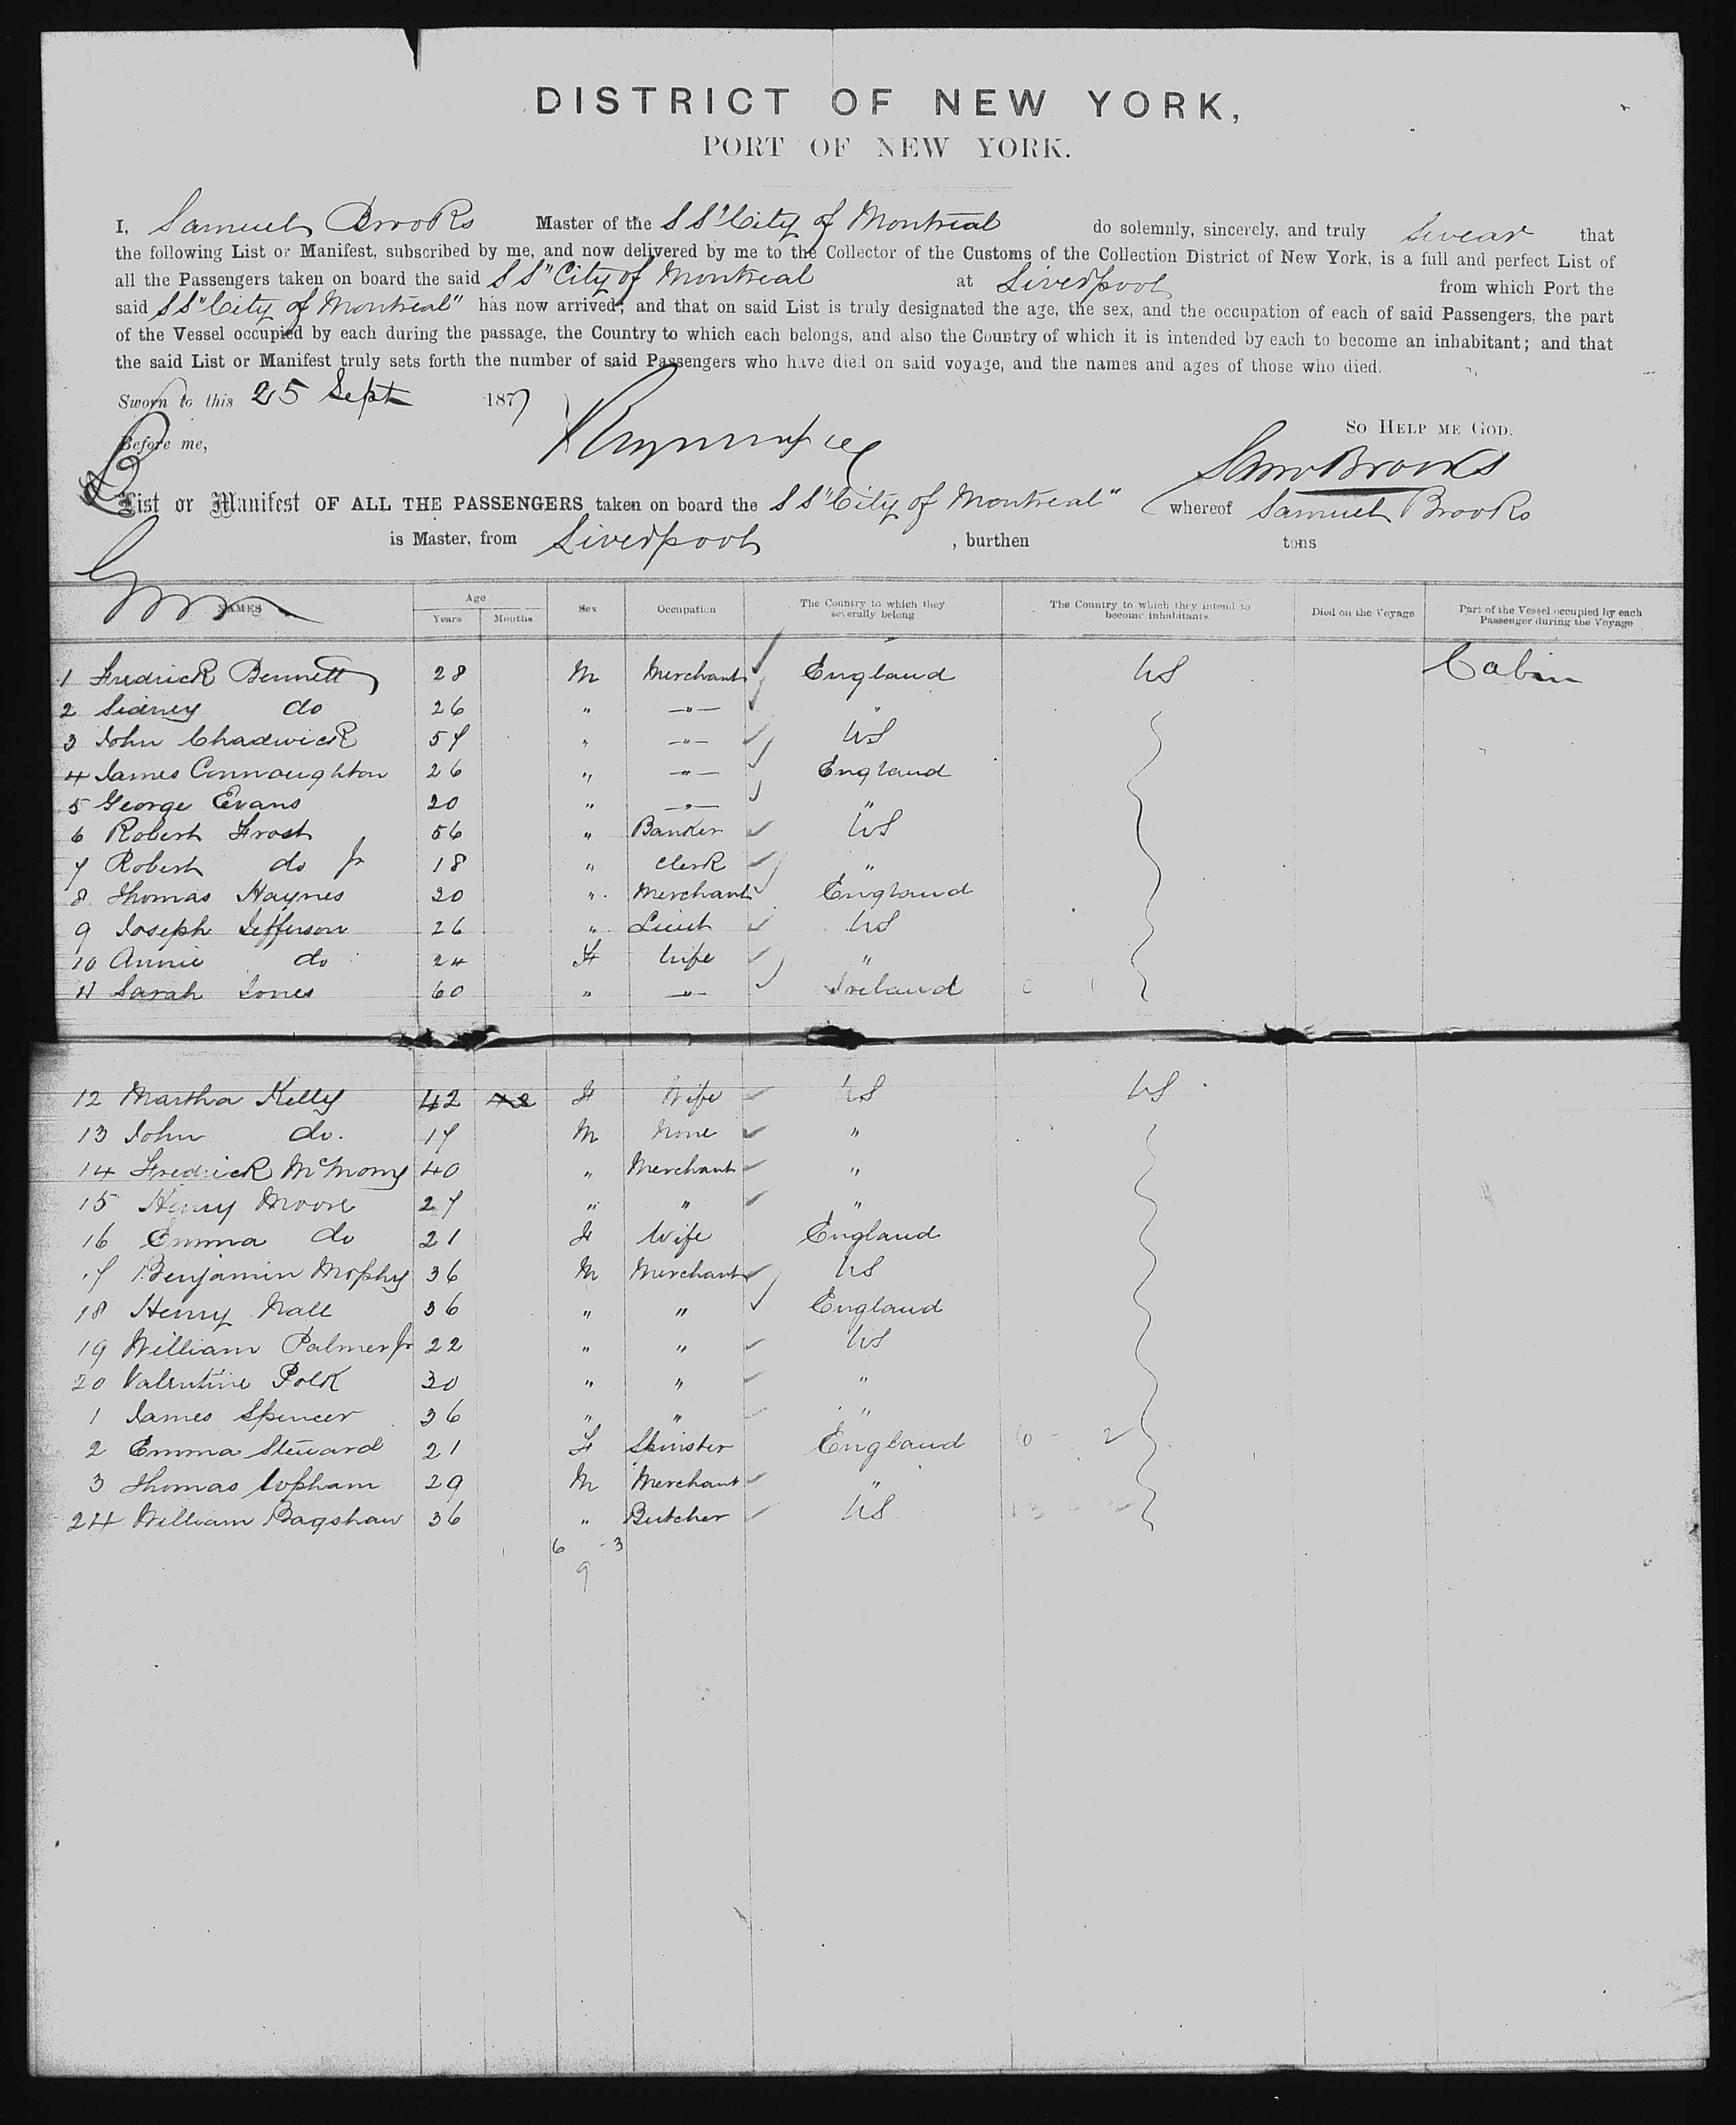 DISTRICT OF NEW YORK,
PORT OF NEW YORK.
I, Samuel Brooks Master of the SS "City of Montreal do solemnly, sincerely, and truly swear that
the following List or Manifest, subscribed by me, and now delivered by me to the Collector of the Customs of the Collection District of New York, is a full and perfect List of
all the Passengers taken on board the said SS "City of Montreal at Liverpool from which Port the
said SS "City of Montreal" has now arrived; and that on said List is truly designated the age, the sex, and the occupation of each of said Passengers, the part
of the Vessel occupied by each during the passage, the Country to which each belongs, and also the Country of which it is intended by each to become an inhabitant; and that
the said List or Manifest truly sets forth the number of said Passengers who have died on said voyage, and the names and ages of those who died.
Sworn to this 25 Sept 1877
So Help me God.
Before me,
Saml Brooks
List or Manifest OF ALL THE PASSENGERS taken on board the SS "City of Montreal" whereof Samuel Brooks
is Master, from Liverpool , burthen tons
NAMES Age Years Months Sex Occupation The Country to which they severally belong The Country to which they intend to become inhabitants. Died on the Voyage Part of the Vessel occupied by each Passenger during the Voyage
1 Fredrick Bennett 28 M Merchant England US Cabin
2 Sidney do 26 " " "
3 John Chadwick 57 " " US
4 James Connaughton 26 " " England
5 George Evans 20 " " "
6 Robert Frost 56 " Banker US
7 Robert do Jr 18 " Clerk "
8 Thomas Haynes 20 " Merchant England
9 Joseph Jefferson 26 " Lieut US
10 Annie do 24 F Wife "
11 Sarah Jones 60 " " Ireland
12 Martha Kelly 42 F Wife US US
13 John do. 17 M None "
14 Fredrick 40 " Merchant "
15 Henry Moore 27 " " "
16 Emma do 21 F Wife England
17 Benjamin 36 M Merchant US
18 Henry Nall 36 " " England
19 William Palmer Jr 22 " " US
20 Valentine Polk 30 " " "
1 James Spencer 36 " " "
2 Emma Steward 21 F Spinster England
3 Thomas 29 M Merchant "
24 William Bagshaw 36 " Butcher US
6 - 3
9